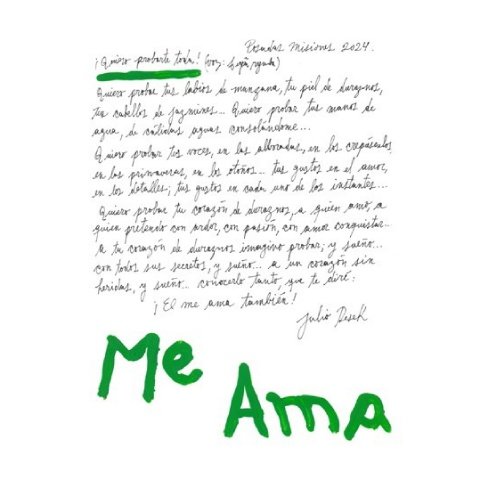 Posadas Misiones 2024.
¡Quiero probarte toda! (voz: aguda)
Quiero probar tus labios de manzana, tu piel de duraznos,
tus cabellos de jazmines... Quiero probar tus manos de
agua, de cálidas aguas consolándome...
Quiero probar tus voces, en las alboradas, en los crepúsculos
en las primaveras, en los otoños... tus gustos en el amor,
en los detalles; tus gustos en cada uno de los instantes...
Quiero probar tu corazón de duraznos, a quien amo, a
quien pretendo con ardor, con pasión, con amor conquistar...
a tu corazón de duraznos imagino probar; y sueño...
con todos sus secretos, y sueño... a un corazón sin
heridas, y sueño... conocerlo tanto, que te diré:
¡El me ama también!
Julio
Me
Ama